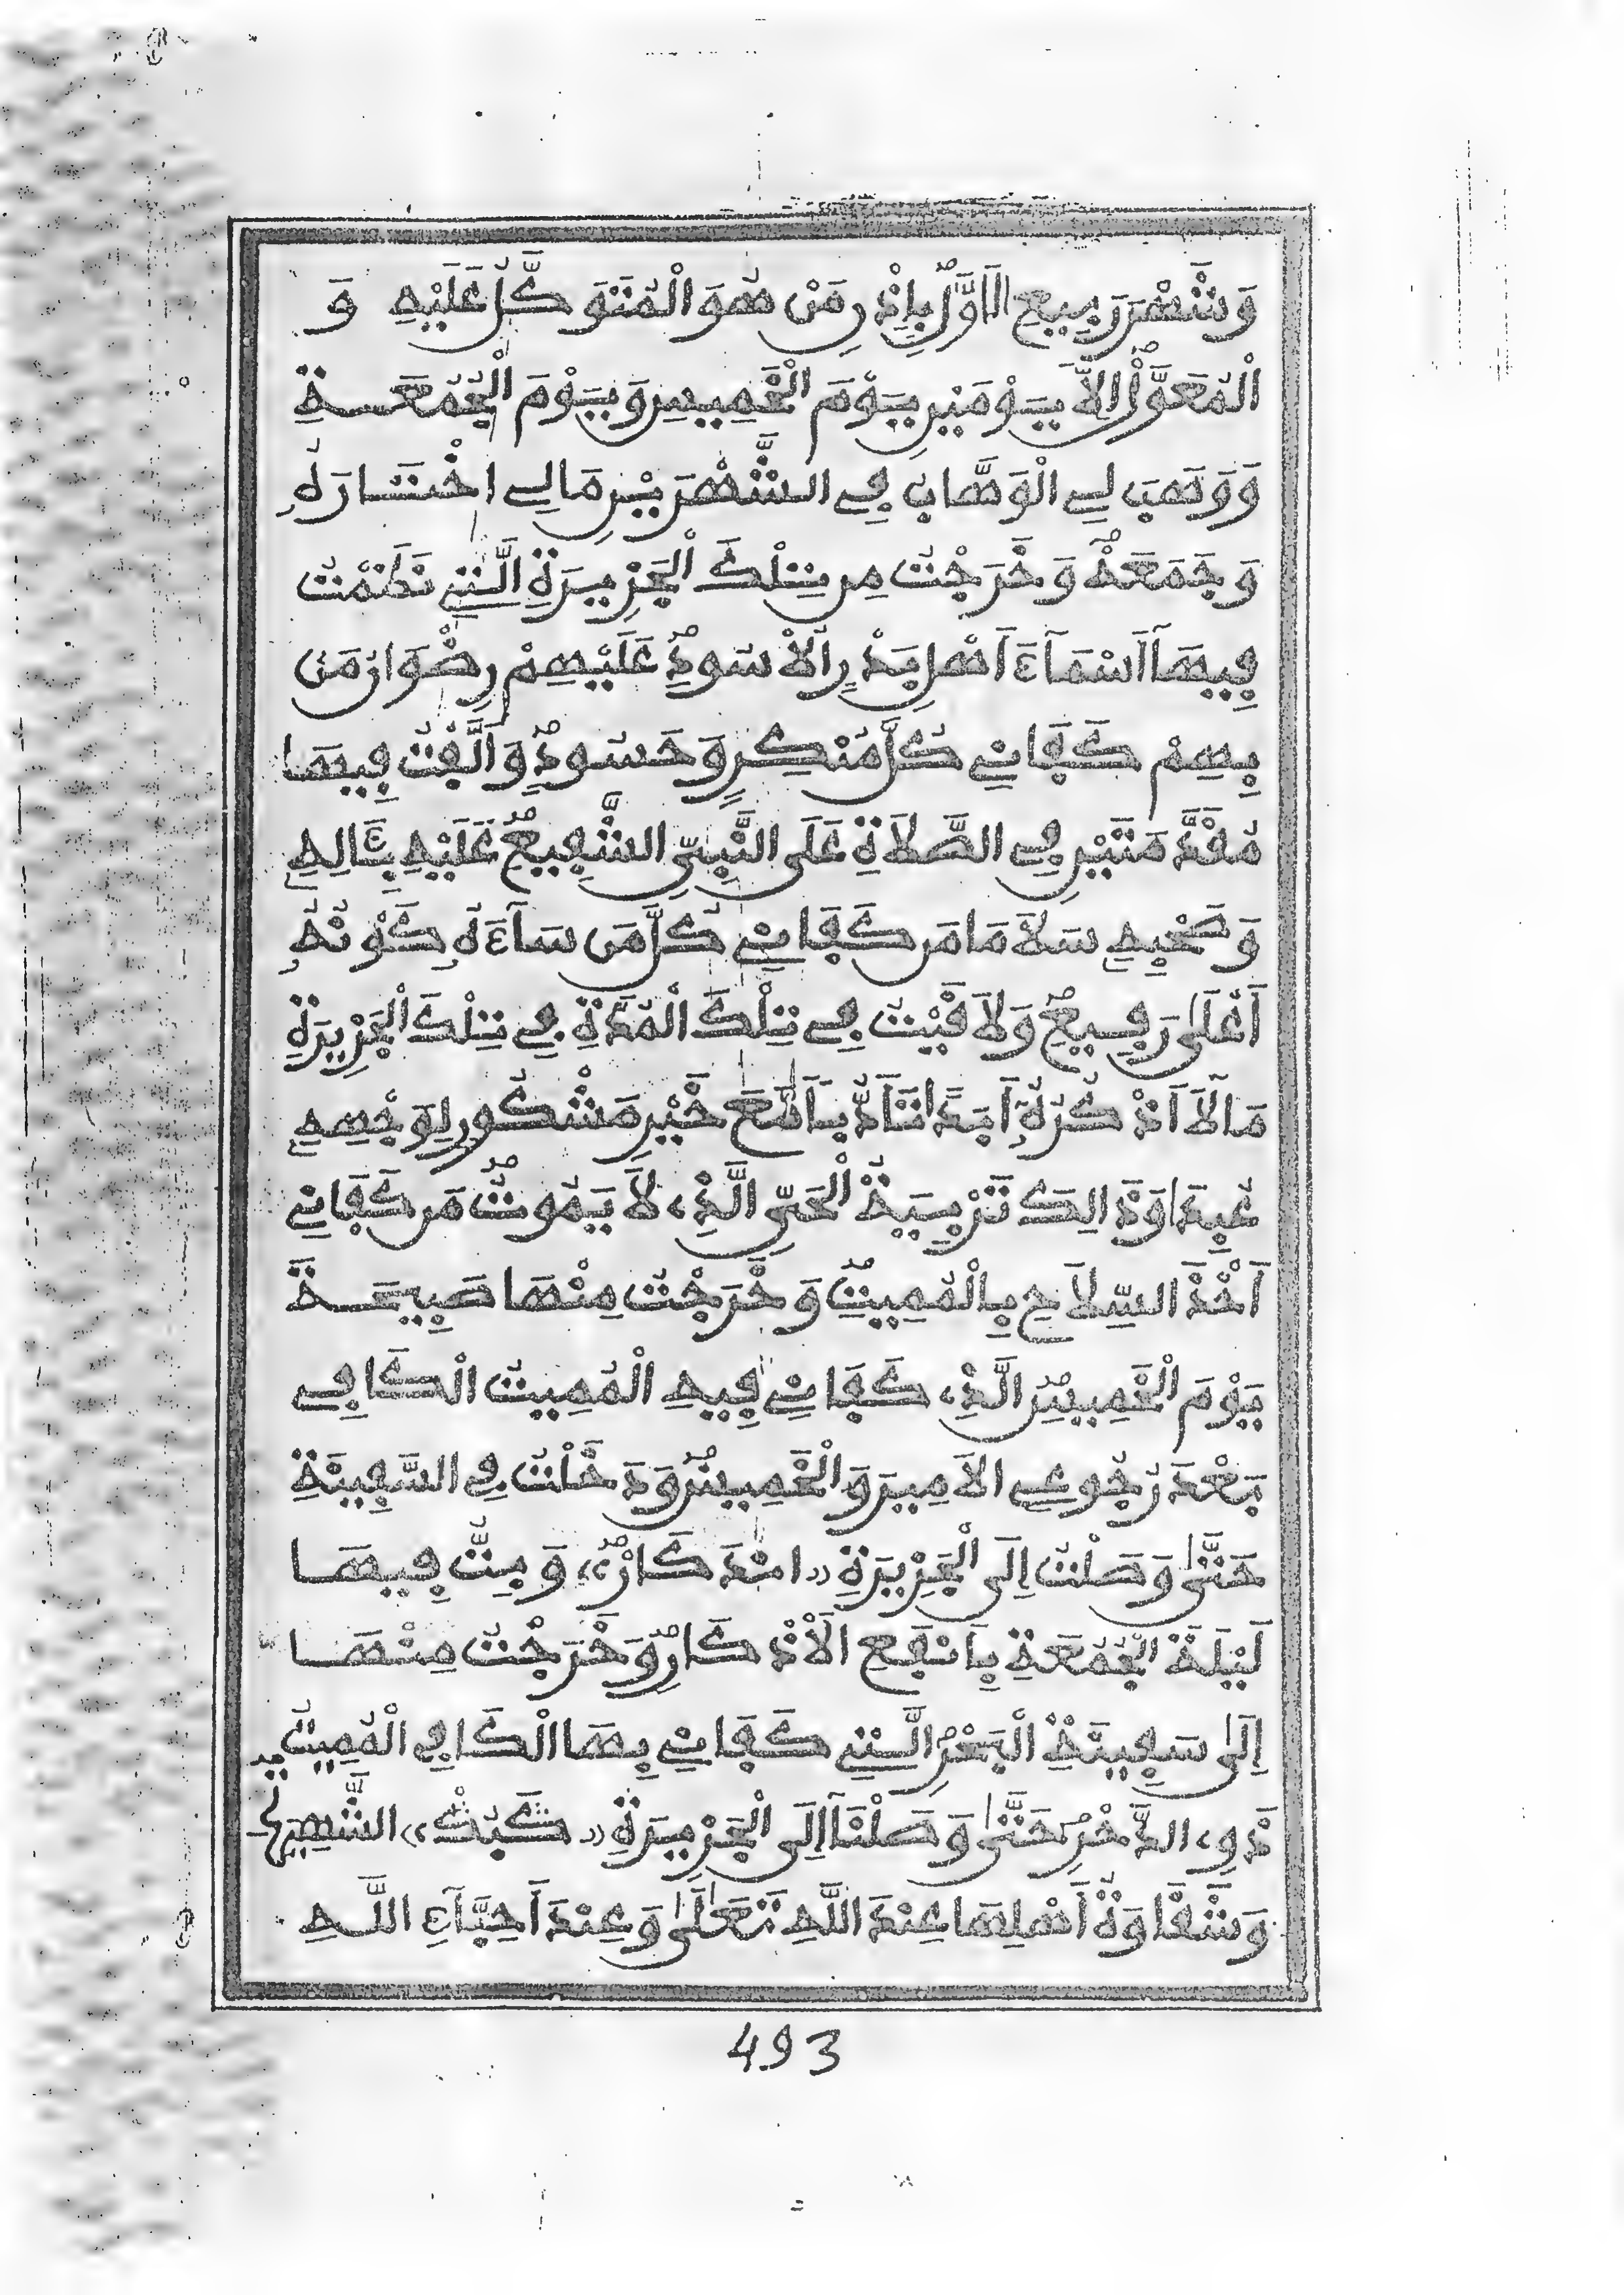 وَشَهْرَ رَبِيعِ الَاوَّلِ بِإِذْنِ مَنْ هُوَ الْمُتَوَكَّلُ عَلَيْهِ وَ
الْمُعَوَّلُ إِلاَّ يَوْمَيْنِ يَوْمَ الْخَمِيسِ وَيَوْمَ الْجُمُعَـةِ
وَوَهَبَ لِي الْوَهَّابُ فِي الشَّهْرَيْنِ مَا لِي اخْتَـارَهُ
وَجَمَعَهُ وَخَرَجْتُ مِن تِلْكَ الْجَزِيرَةِ الَّتِي نَظَمْتُ
فِيهَا أَسْمَآءَ أَهْلِ بَدْرٍ الاُسُودِ عَلَيْهِمْ رِضْوَانُ مَنْ
بِهِمْ كَفَانِي كُلَّ مُنْكِرٍ وَحَسُودٍ وَأَلَّفْتُ فِيهَا
مُقَدَّمَتَيْنِ فِي الصَّلاَةِ عَلَى النَّبِيِّ الشَّفِيعِ عَلَيْهِ بِـَٔالِهِ
وَصَحْبِهِ سَلاَمَا مَن كَفَانِي كُلَّ مَن سَآءَهُ كَوْنُهُ
أَعْلَى رَفِيعٍ وَلاَقَيْتُ فِي تِلْكَ الْمُدَّةِ فِي تِلْكَ الْجَزِيرَةِ
مَا لَآ أَذْكُرُهُ أَبَدًا تَأَدُّبًا مَعَ خَيْرِ مَشْكُورٍ لِوَجْهِهِ
عُبِدَ اوَذَالِكَ تَرْبِيَةُ الْحَيِّ الَّذِي لاَ يَمُوتُ مَن كَفَانِي
أَخْذَ السِّلاَحِ بِالْمُمِيتِ وَخَرَجْتُ مِنْهَا صَبِيحَـةَ
يَوْمِ الْخَمِيسِ الَّذِي كَفَانِي فِيهِ الْمُمِيتُ الْكَافِي
بَعْدَ رُجُوعِي الاَمِيرَ وَالْخَمِيسَ وَدَخَلْتُ فِي السَّفِينَةِ
حَتَّى وَصَلْتُ إِلَى الْجَزِيرَةِ «انْدَكَارْ» وَبِتُّ فِيهَـا
لَيْلَةَ الْجُمُعَةِ بِأَنْفَعِ الْأَذْكَارِ وَخَرَجْتُ مِنْهَـا
إِلَى سَفِينَةِ الْبَحْرِ الَّتِي كَفَانِي بِهَا الْكَافِي الْمُمِيتُ
ذُو الدَّخْرِ حَتَّى وَصَلْنَآ إِلَى الْجَزِيرَةِ «كَبُكْ» الشَّهِيرِ
وَشَقَاوَةُ أَهْلِهَا عِنْدَ اللَّهِ تَعَالَى وَعِنْدَ أَحِبَّآءِ اللَّـهِ
493